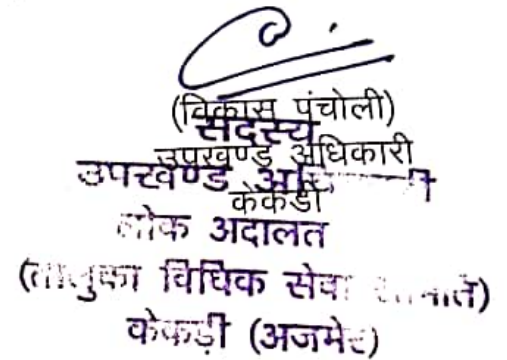 (विकास पंचोली)
सदस्य
उपखण्ड अधिकारी
उपखण्ड
केकडी
लोक अदालत
(तालुका विधिक सेवा
केकड़ी (अजमेर)